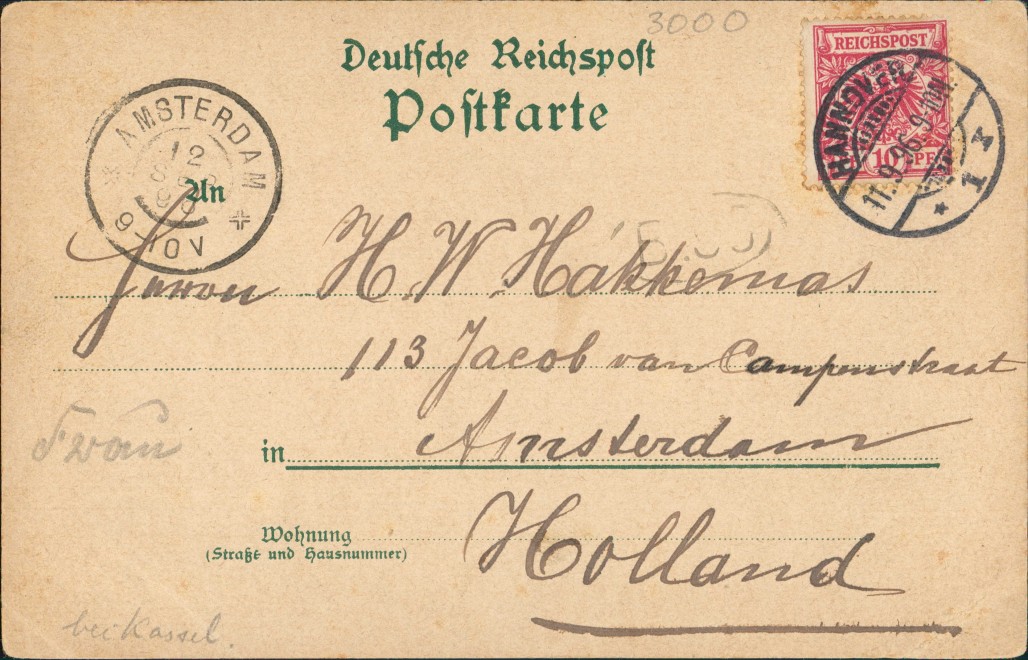 3000
Deutsche Reichspost
Postkarte
REICHSPOST
10 PF
HANNOVER
11.9.96.9-10N.
* 1 *
AMSTERDAM
12
9-10V
An
H. W. Hakkemas
113 Jacob van Campenstraat
in Amsterdam
Holland
Wohnung
(Straße und Hausnummer)
bei Kassel.